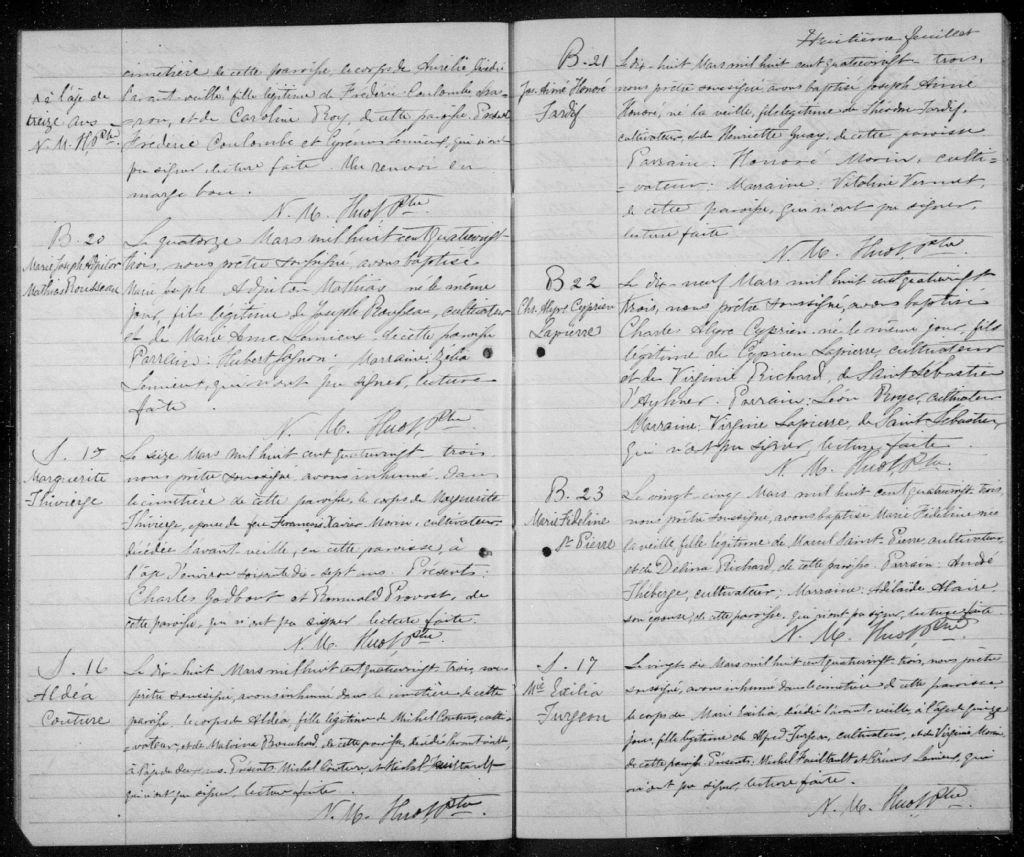 cimetière de cette paroisse, le corps de Aurélie, décédée
à l'âge de
treize ans
N. M. H. Ptre
l'avant-veille, fille légitime de Frédéric Coulombe,
et de Caroline Roy, de cette paroisse. Présents
Frédéric Coulombe et Cyrénus Lemieux, qui n'ont
pu signer, lecture faite. Un renvoi en
marge bon.
N. M. Huot, Ptre
B. 20
Marie Joseph Adjutor
Mathias Rousseau
Le quatorze Mars mil huit cent quatrevingt-
trois, nous prêtre soussigné, avons baptisé
Marie Joseph Adjutor Mathias né le même
jour, fils légitime de Joseph Rousseau, cultivateur
et de Marie Anne Lemieux de cette paroisse
Parrain: Hubert Gagnon: Marraine: Zélia
Lemieux, qui n'ont pu signer, lecture
faite.
N. M. Huot, Ptre
S. 15
Marguerite
Thivierge
Le seize Mars mil huit cent quatrevingt trois
nous prêtre soussigné avons inhumé dans
le cimetière de cette paroisse, le corps de Marguerite
Thivierge, épouse de feu François Xavier Morin, cultivateur
décédée l'avant-veille, en cette paroisse, à
l'âge d'environ soixante dix-sept ans. Présents:
Charles Godbout et Romuald Provost, de
cette paroisse, qui n'ont pu signer lecture faite.
N. M. Huot, Ptre
S. 16
Aldéa
Couture
Le dix-huit Mars mil huit cent quatrevingt-trois, nous
prêtre soussigné, avons inhumé dans le cimetière de cette
paroisse, le corps de Aldéa, fille légitime de Michel Couture, culti-
-vateur, et de Malvina Bouchard, de cette paroisse, décédée l'avant-veille,
à l'âge de deux ans. Présents Michel Couture, et Michel Faultault
qui n'ont pu signer, lecture faite.
N. M. Huot, Ptre
Huitième feuillet
B. 21
Jos. Aimé Honoré
Tardif
Le dix-huit Mars mil huit cent quatrevingt-trois,
nous prêtre soussigné, avons baptisé Joseph Aimé
Honoré, né la veille, fils légitime de Théodore Tardif,
cultivateur, et de Henriette Guay, de cette paroisse
Parrain: Honoré Morin, culti-
-vateur: Marraine: Vitaline Verret,
de cette paroisse, qui n'ont pu signer,
lecture faite
N. M. Huot, Ptre
B 22
Chs. Alyre Cyprien
Lapierre
Le dix-neuf Mars mil huit cent quatrevingt
trois, nous prêtre soussigné, avons baptisé
Charles Alyre Cyprien né le même jour, fils
légitime de Cyprien Lapierre, cultivateur
et de Virginie Richard, de Saint Sébastien
d'Aylmer. Parrain: Léon Royer, cultivateur
Marraine: Virginie Lapierre, de Saint Sébastien,
qui n'ont pu signer, lecture faite.
N. M. Huot, Ptre
B. 23
Marie Fideline
St Pierre
Le vingt cinq Mars mil huit cent quatrevingt trois,
nous prêtre soussigné, avons baptisé Marie Fideline née
la veille fille légitime de Marcel Saint-Pierre cultivateur,
et de Delina Richard, de cette paroisse. Parrain: André
Théberge, cultivateur; Marraine: Adélaïde Allaire
son épouse, de cette paroisse, qui n'ont pu signer, lecture faite
N. M. Huot, Ptre
S. 17
Mie Exilia
Turgeon
Le vingt-six Mars mil huit cent quatrevingt-trois, nous prêtre
soussigné, avons inhumé dans le cimetière de cette paroisse
le corps de Marie Exilia, décédée l'avant-veille, à l'âge de quinze
jours, fille légitime de Alfred Turgeon, cultivateur, et de Virginie Morin
de cette paroisse. Présents: Michel Faultault et Cyrénus Lemieux, qui
n'ont pu signer, lecture faite.
N. M. Huot, Ptre